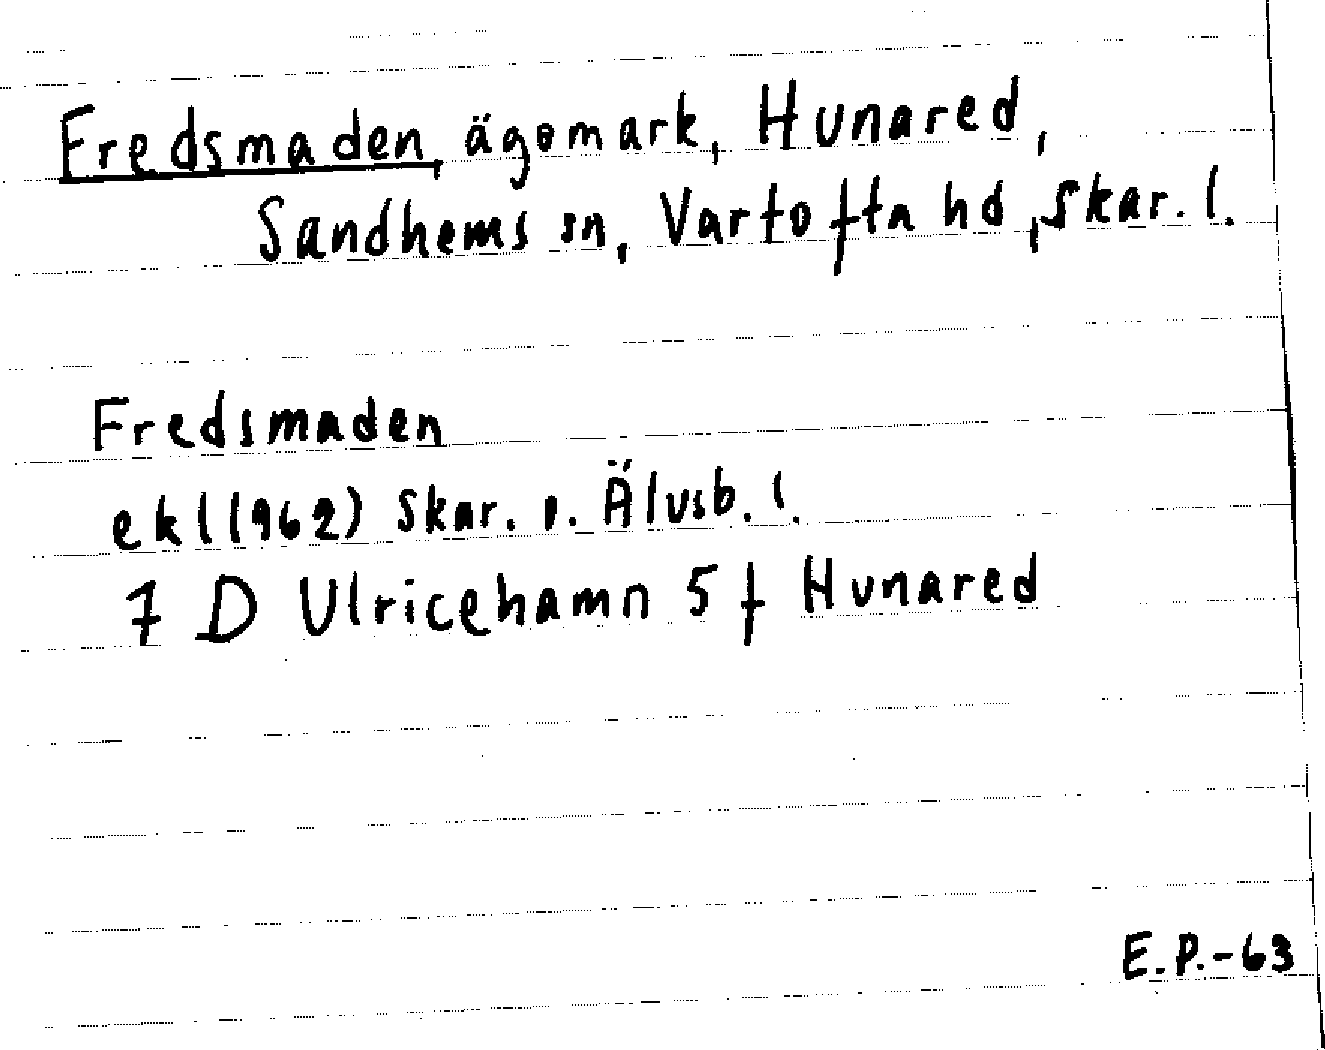 Fredsmaden, ägomark, Hunared,
Sandhems sn, Vartofta hd, Skar. l.
Fredsmaden
ekl(1962) Skar. o. Älvsb. l.
7 D Ulricehamn 5 f Hunared
E.P.-63